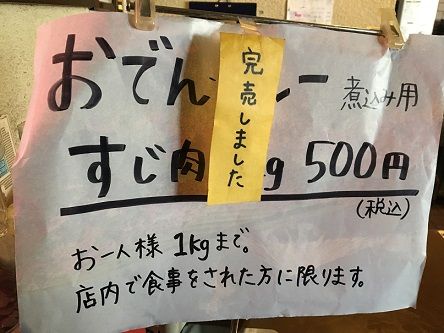 おでん ー 煮込み用
完売しました
すじ肉 kg 500円
(税込)
お一人様 1kgまで。
店内で食事をされた方に限ります。